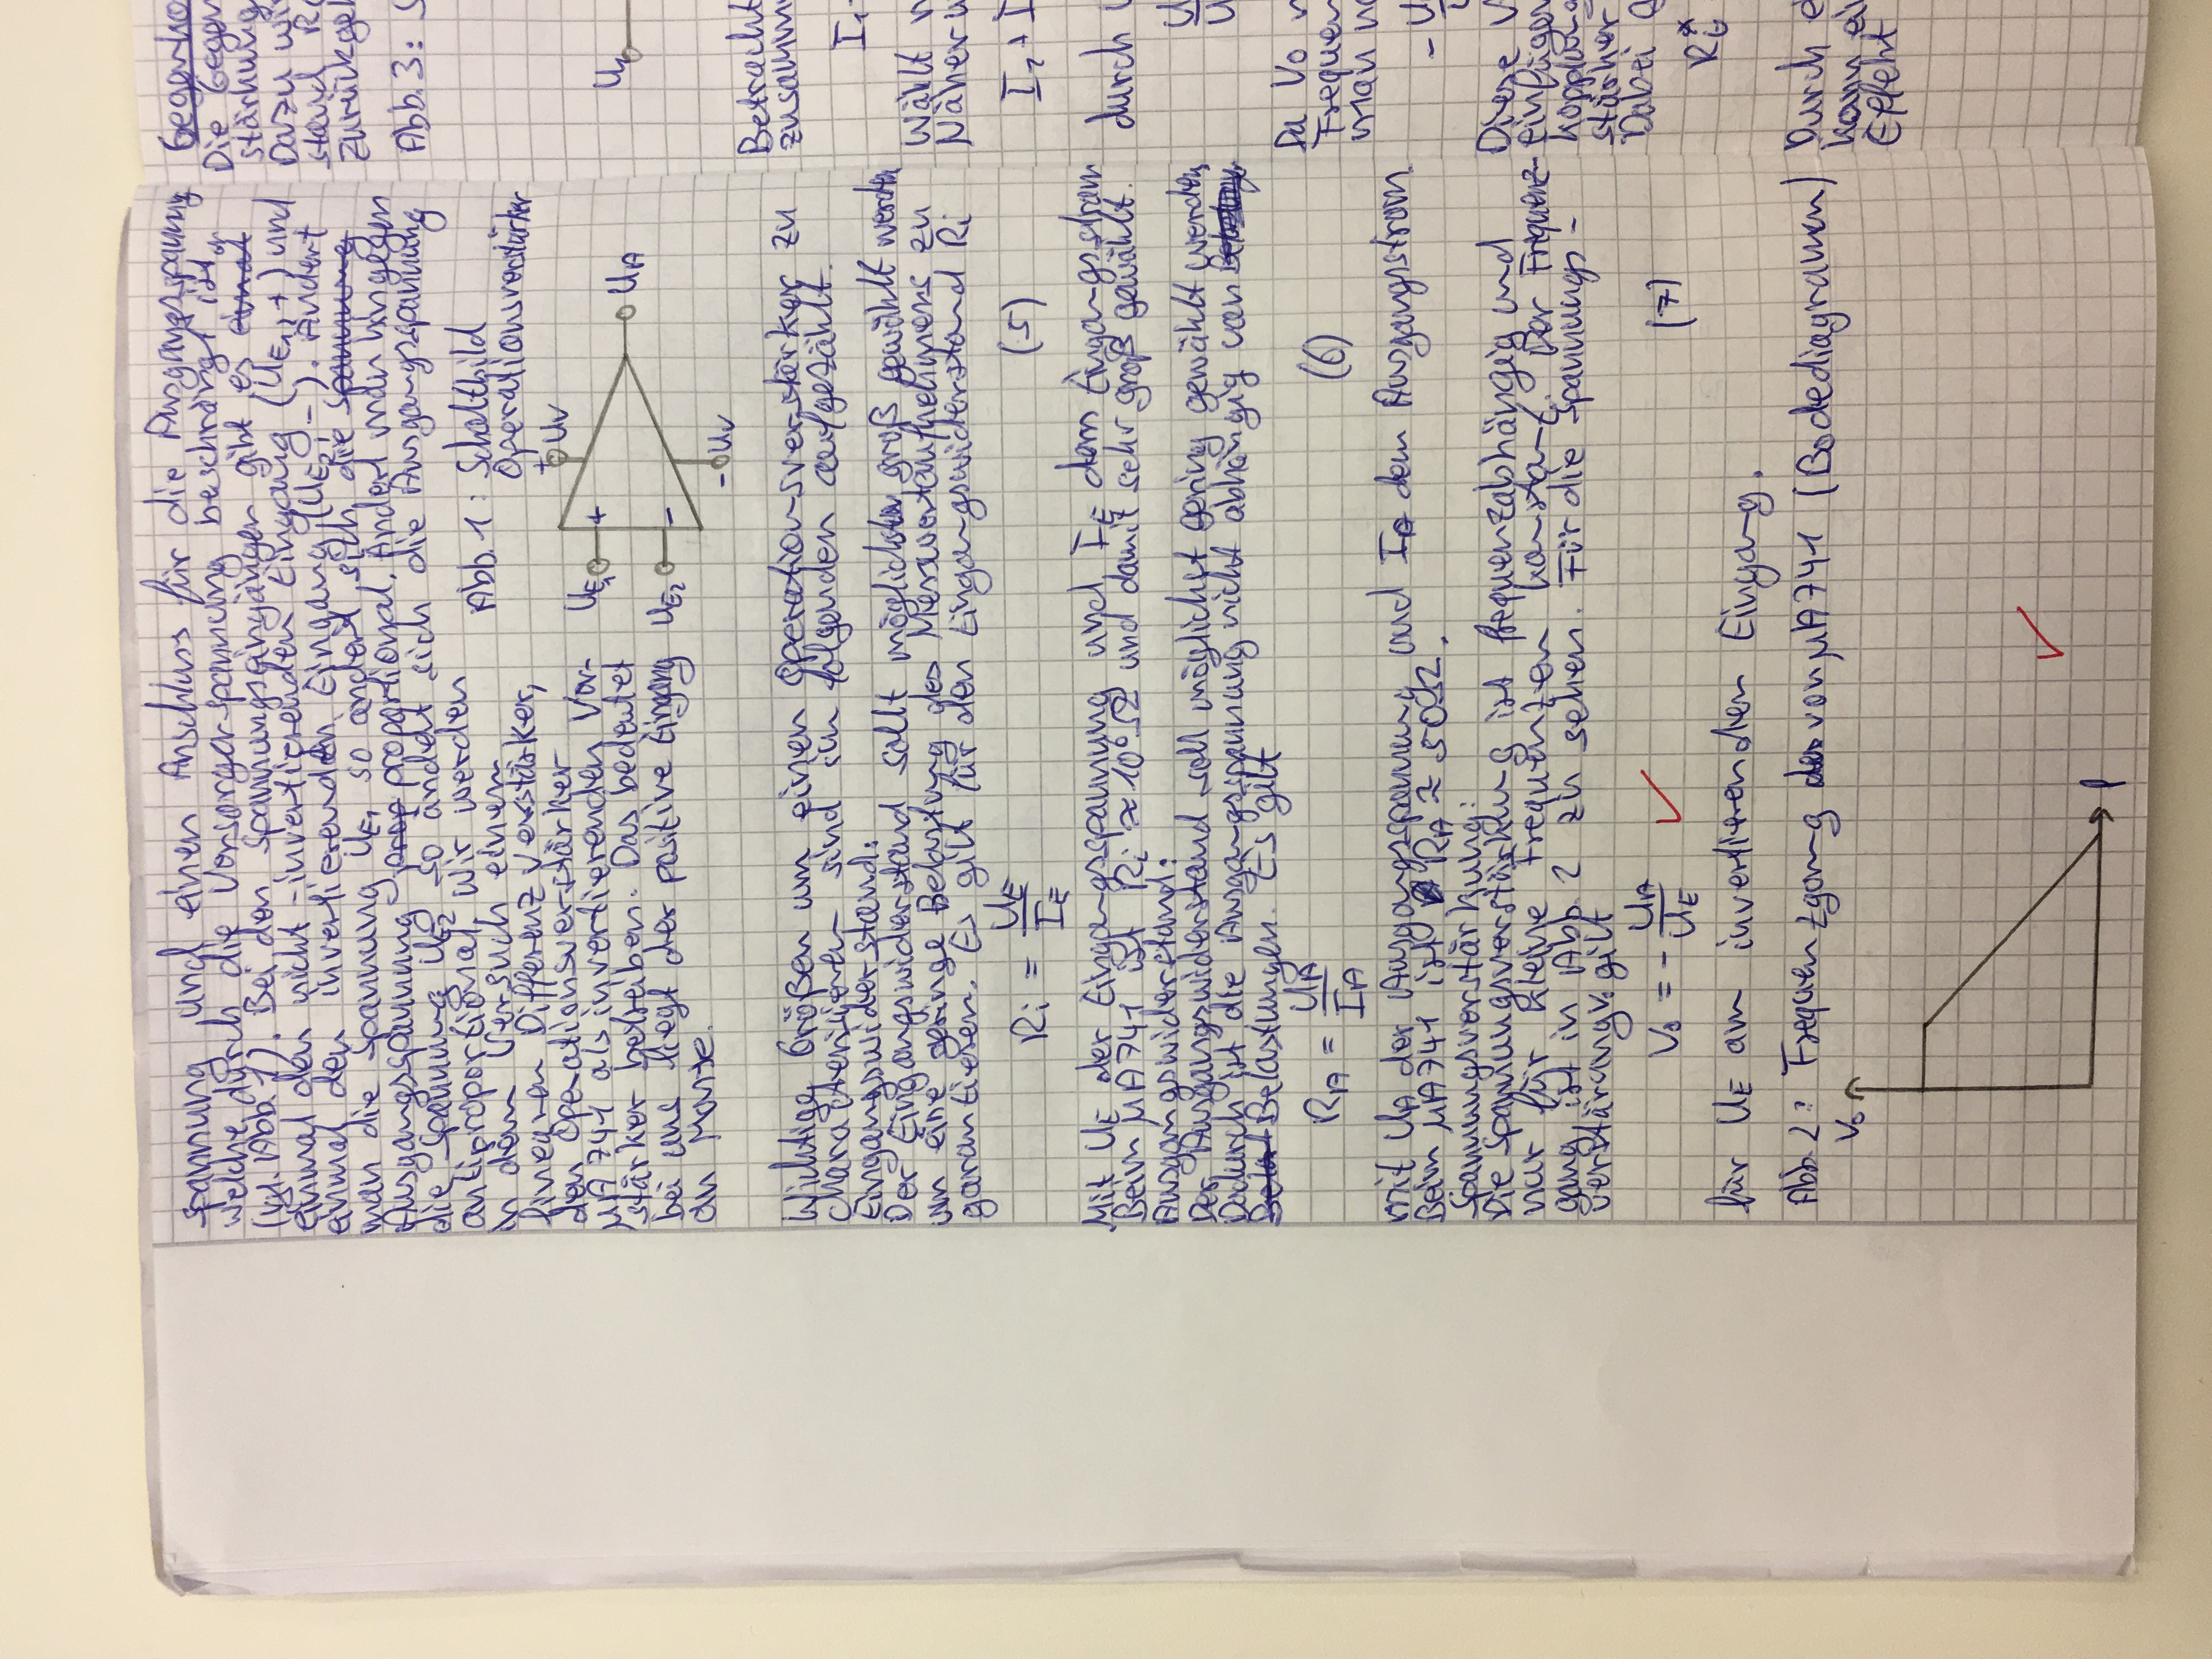 spannung und einen Anschluss für die Ausgangsspannung
welche durch die Vorsorgerspannung beschrängt ist.
(vgl. Abb. 1). Bei den Spannungseingängen gibt es
einmal den nicht-invertierenden Eingang (UE1, +) und
einmal den invertierenden Eingang (UE2, -). Ändert
man die Spannung UE1 so ändert sich die
Ausgangsspannung proportional. Ändert man hingegen
die Spannung UE2 so ändert sich die Ausgangsspannung
antiproportional. Wir werden
in dem Versuch einem
linearen Differenzverstärker,
den Operationsverstärker
µA741 als invertierenden Ver-
stärker betreiben. Das bedeutet
bei uns liegt der positive Eingang
an Masse.
Abb. 1: Schaltbild
Operationsverstärker
+UV
UE1 +
UA
UE2 -
-UV
Wichtige Größen um einen Operationsverstärker zu
charakterisieren sind im folgenden aufgezählt.
Eingangswiderstand:
Der Eingangswiderstand sollt möglichst groß gewählt werden
um eine geringe Belastung des Messwertaufnehmers zu
garantieren. Es gilt für den Eingangswiderstand Ri
Ri = UE / IE (5)
Mit UE der Eingangsspannung und IE dem Eingangsstrom
Beim µA741 ist Ri ≈ 10⁶Ω und damit sehr groß gewählt.
Ausgangswiderstand:
Der Ausgangswiderstand soll möglichst gering gewählt werden,
Dadurch ist die Ausgangsspannung nicht abhängig von
Belastungen. Es gilt
RA = UA / IA (6)
mit UA der Ausgangsspannung und IA dem Ausgangsstrom.
Beim µA741 ist RA ≈ 50Ω.
Spannungsverstärkung:
Die Spannungsverstärkung ist frequenzabhängig und
nur für kleine Frequenzen konstant. Der Frequenz-
gang ist in Abb. 2 zu sehen. Für die Spannungs-
verstärung V0 gilt
V0 = - UA / UE (7)
für UE am invertierenden Eingang.
Abb. 2: Frequenzgang von µA741 (Bodediagramm)
V0
f
Die Gegen
stärkung
Dazu wi
stand R
zurückge
Abb. 3: S
U1
Betracht
zusamm
I1
Wählt
Näher
I1 + I
durch
U
U
Da V0
Frequen
man
- U
Diese V
einfügen
kopplung
stärker
Dabei
Ri*
Durch e
kann ei
Effekt